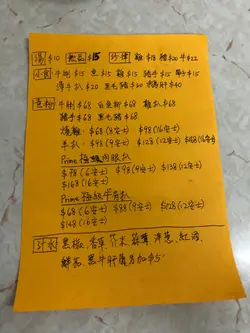 湯 $10 飲品 $15 沙律 雞 $18 豬 $20 牛 $22
小食 牛脷 $15 魚 $15 雞 $15 豬手 $15 $15
薄牛扒 $20 黑毛豬 $20 鵝肝 $40
意粉 牛脷 $68 白魚柳 $68 雞扒 $68
豬手 $68 黑毛豬 $68
燒雞: $68 (8安士) $98 (16安士)
羊扒: $98 (9安士) $128 (12安士) $138 (16安士)
Prime 極級肉眼扒
$78 (6安士) $98 (9安士) $138 (12安士)
$168 (16安士)
Prime 極級牛扒
$68 (6安士) $88 (9安士) $128 (12安士)
$148 (16安士)
汁水 黑椒, 香草, 芥末, 蒜蓉, 洋蔥, 紅酒,
鮮菇 黑牛肝菌另加$5